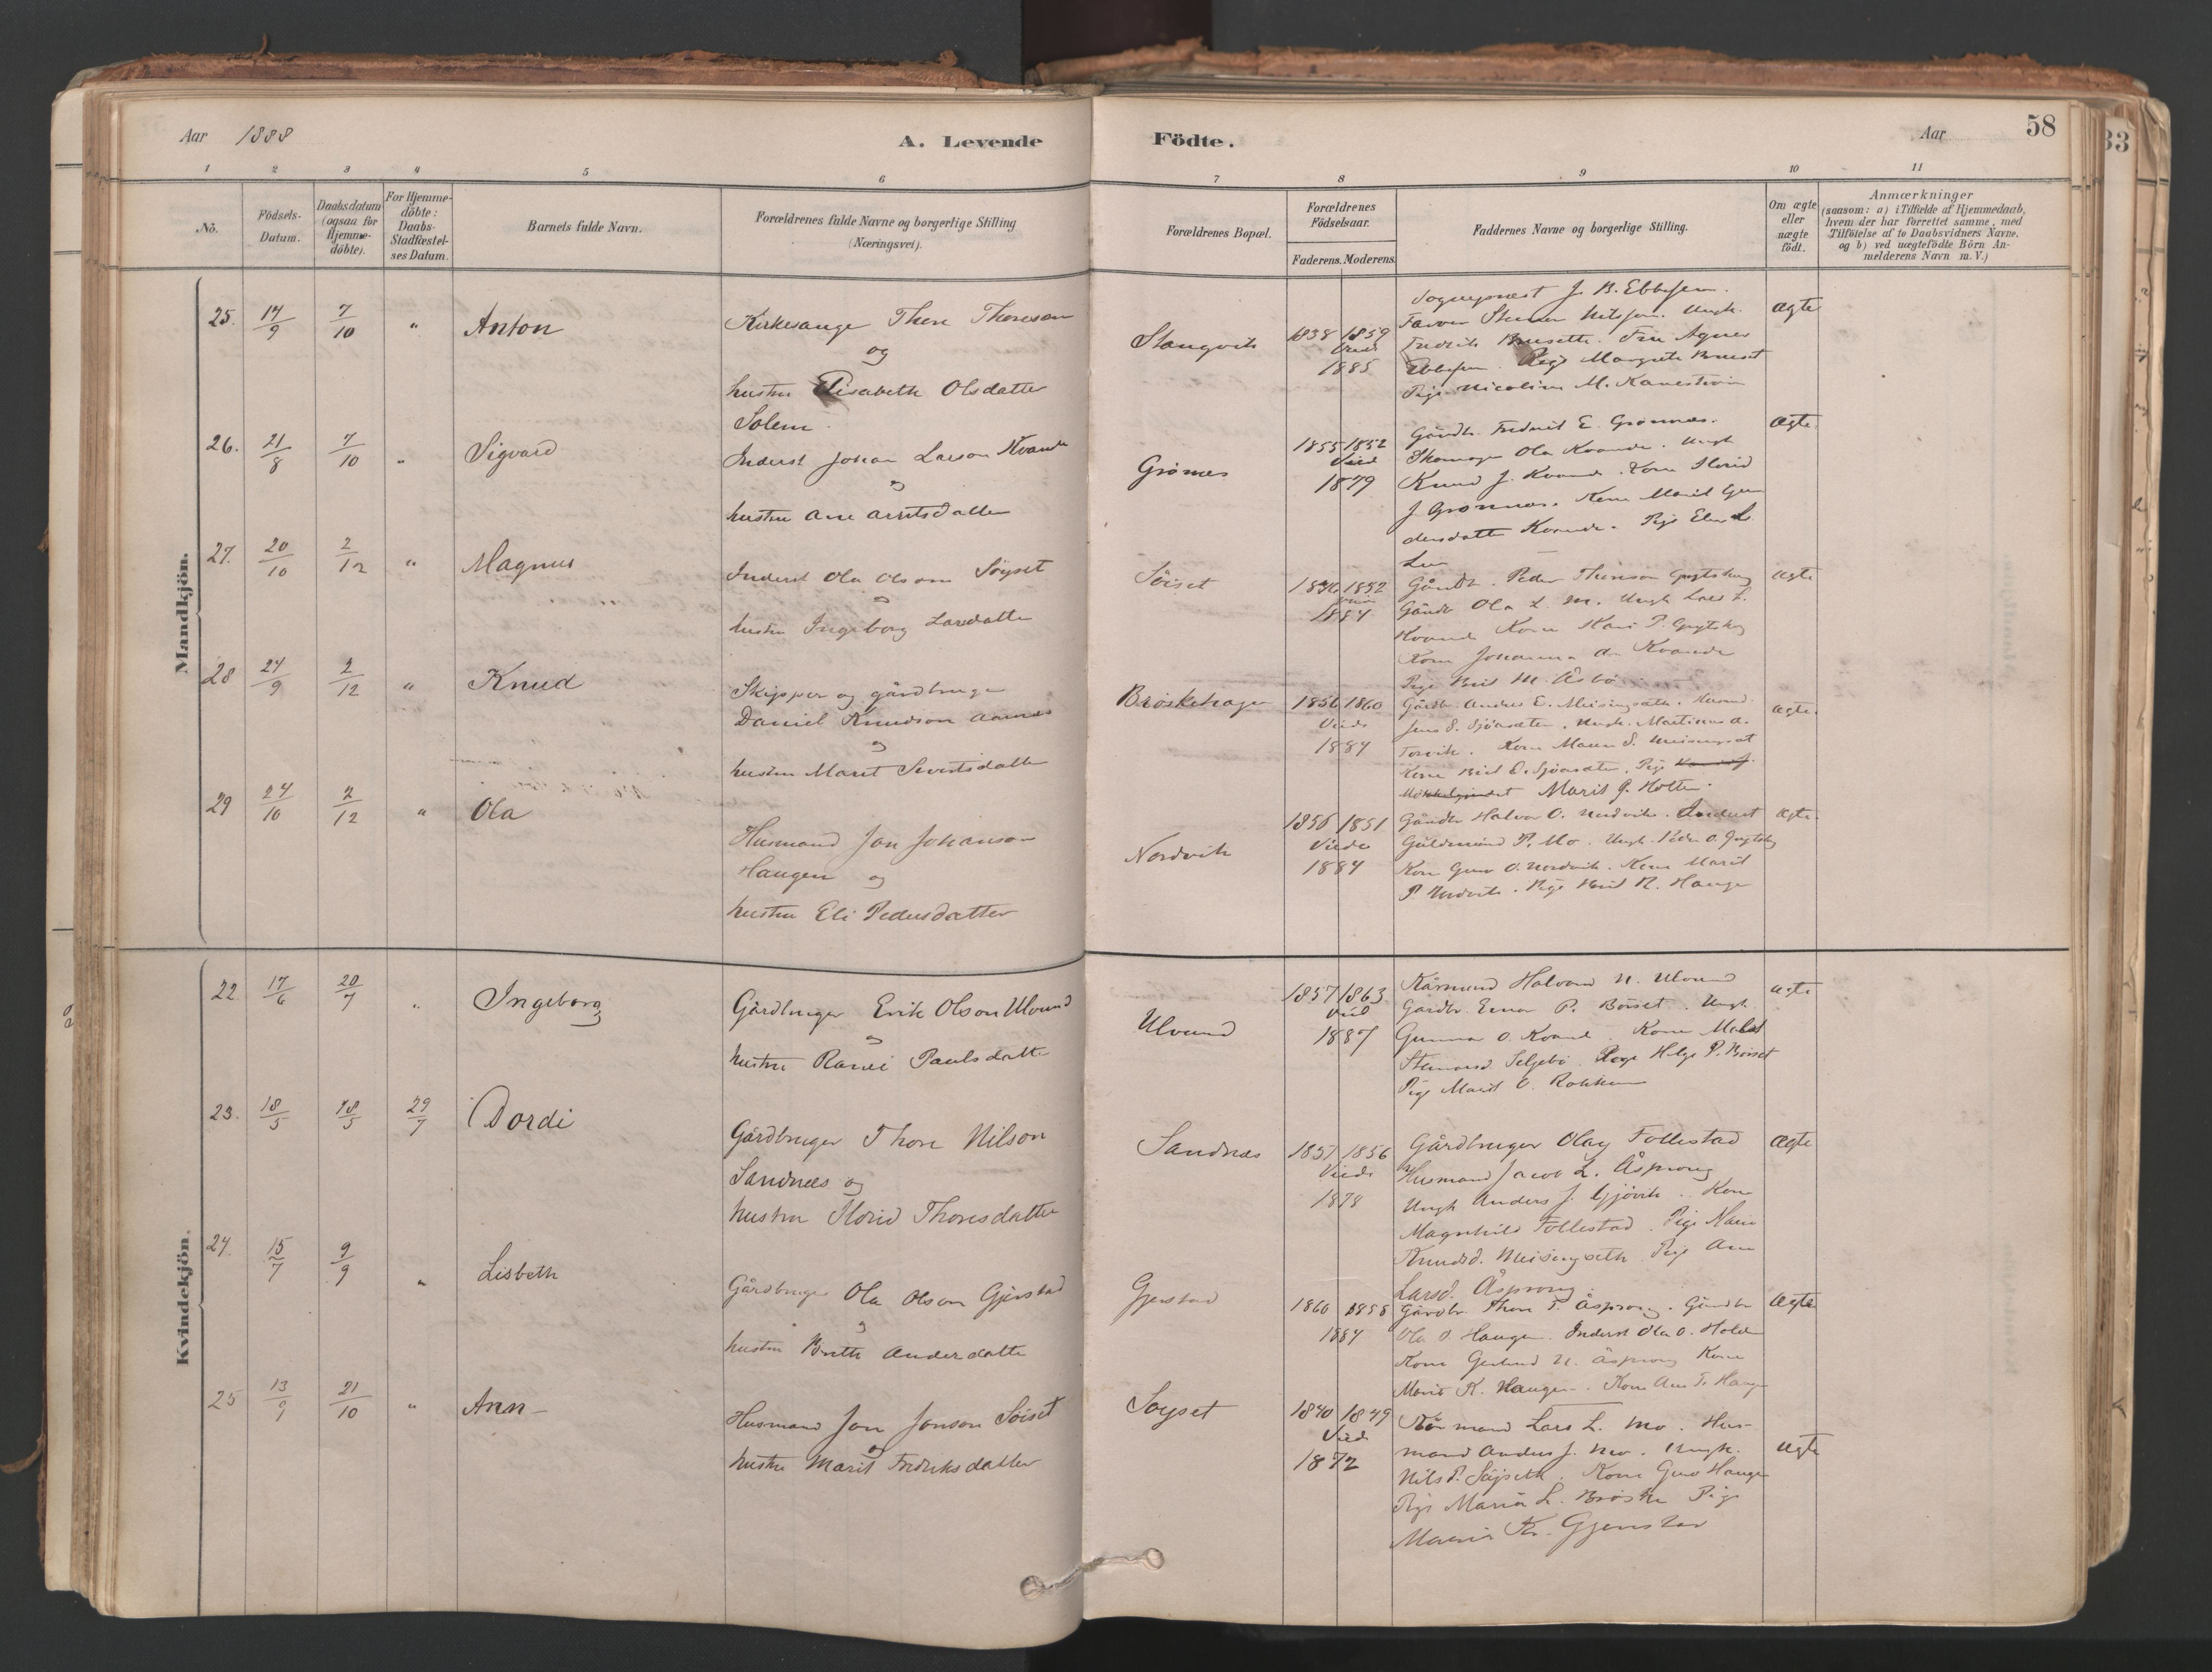 Aar 1888
A. Levende
Födte.
Aar
58
33
1 2 3 4 5 6 7 8 9 10 11
No.
Födsels-
Datum.
Daabsdatum
(ogsaa for
Hjemme-
döbte).
For Hjemme-
döbte:
Daabs-
Stadfæstel-
ses Datum.
Barnets fulde Navn.
Forældrenes fulde Navne og borgerlige Stilling
(Næringsvei).
Forældrenes Bopæl.
Forældrenes
Födselsaar.
Faderens. Moderens.
Faddernes Navne og borgerlige Stilling.
Om ægte
eller
uægte
født.
Anmærkninger
(saasom: a) i Tilfælde af Hjemmedaab,
hvem der har forrettet samme, med
Tilföielse af to Daabsvidners Navne,
og b) ved uægtefödte Börn An-
melderens Navn m. V.)
Mandkjön.
25. 14/9 7/10 " Anton
Kirkesanger Thore Thoreson
og
hustru Elisabeth Olsdatter
Solem
Stangvik
1838 1859
Viede
1885
Sogneprest J. B. Ebbesen.
Nilsen. Ungk.
Fredrik Bruseth. Fru Agnes
Ebbesen. Pige Margrete Bruset
Pige Nicoline M. Kanestrøm
Ægte
26. 21/8 7/10 " Sigvard
Inderst Johan Larson Kvande
og
hustru Ane Arntsdatter
Grønnes
1855 1852
Viede
1879
Gårdbr. Fredrik E. Grønnes.
Skomager Ola Kvande. Ungk
Knud J. Kvande. Kone Slorid
J. Grønnes. Kone Marit
Kvande. Pige
Ægte
27. 20/10 2/12 " Magnus
Inderst Ola Olson Söyset
og
hustru Ingeborg Larsdatter
Söiset
1846 1852
1884
Gårdbr. Peder Thoreson
Gårdbr Ola L. M. Ungk Lars L.
Kvande Kone Kari P.
Kone Johanna A. Kvande
Pige Brit M. Åsbö
Ægte
28 24/9 2/12 " Knud
Skipper og gårdbruger
Daniel Knudson Aarnes
og
hustru Marit Sivertsdatter
Brøskehagen
1856 1860
Viede
1884
Gårdbr. Anders E. Meisingseth.
Jens S. Sjöasæter. Ungk. Martinus A.
Torvik. Kone Maren S. Meisingset
Kone Brit O. Sjöasæter. Pige
Marit J. Holten.
Ægte.
29 24/10 2/12 " Ola
Husmand Jon Johanson
Haugen og
hustru Eli Pedersdatter
Nordvik
1856 1851
Viede
1884
Gårdbr Halvor O. Nordvik. Inderst
Guldmund P. Mo. Ungk. Peder O.
Kone Guro O. Nordvik. Kone Marit
P. Nordvik. Pige Brit N. Haugen
Ægte
Kvindekjön.
22. 17/6 20/7 " Ingeborg
Gårdbruger Erik Olson Ulvund
og
hustru Ranei Paulsdatter
Ulvund
1857 1863
Viede
1887
Kårmand Halvard N. Ulvund
Gårdbr. Einar P. Böiset. Ungk
Gunnar O. Kvande. Kone
Seljebö. Pige Helge P. Böiset
Pige Marit O. Rokkum
Ægte
23. 18/5 18/5 29/7 Dordi
Gårdbruger Thore Nilson
Sandnes og
hustru Slorid Thoresdatter
Sandnes
1857 1856
Viede
1878
Gårdbruger Olay Follestad
Husmand Jacob L. Åsprong
Ungk Anders J. Gjövik. Kone
Magnhild Follestad. Pige Mari
Knudsd. Meisingseth. Pige Ane
Larsd. Åsprong.
Ægte
24. 15/7 9/9 " Lisbeth
Gårdbruger Ola Olson Gjerstad
og
hustru Brette Andersdatter
Gjerstad
1860 1858
1884
Gårdbr. Thore T. Åsprong. Gårdbr
Ola O. Haugen. Inderst Ola O. Holden
Kone Gjertrud N. Åsprong Kone
Marit K. Haugen. Kone Ane T. Haugen
Ægte
25 13/9 21/10 " Ann
Husmand Jon Jonson Söiset
og
hustru Marit Fredriksdatter
Söyset
1840 1849
Viede
1872
Kårmand Lars L. Mo. Hus-
mand Anders J. Mo. Ungk.
Nils P. Söyseth. Kone Guro Haugen
Pige Maria L. Brøske Pige
Maria Kr. Gjerstad
Ægte